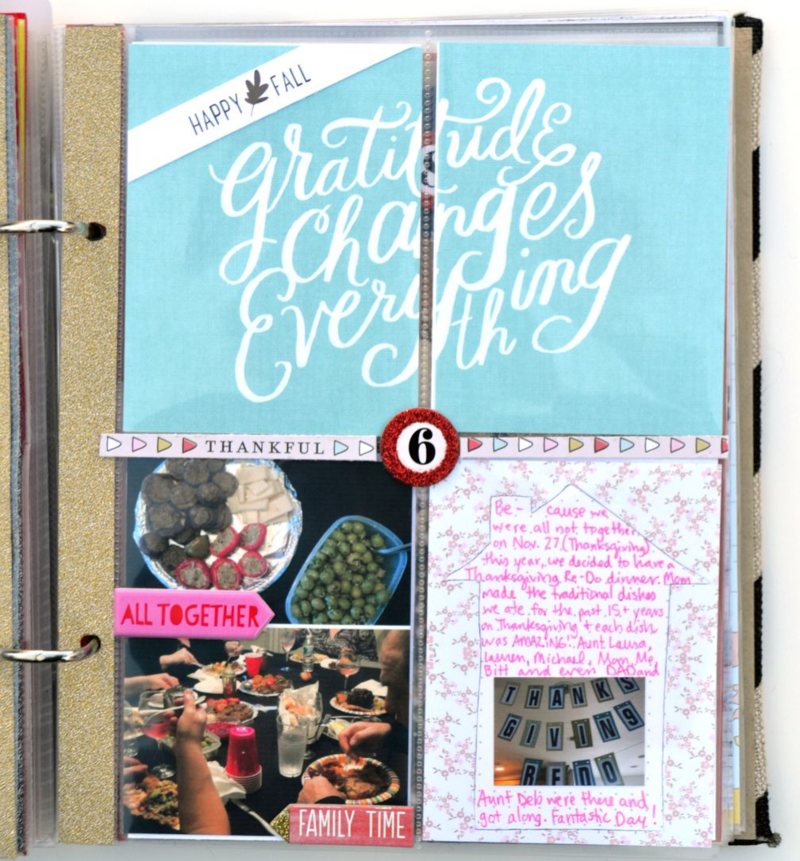 HAPPY FALL
gratitude
changes
Everything
THANKFUL
6
ALL TOGETHER
FAMILY TIME
Be - cause we
were all not together
on Nov. 27 (Thanksgiving)
this year, we decided to have a
Thanksgiving Re-Do dinner. Mom
made the traditional dishes
we ate for the past 15+ years
on Thanksgiving + each dish
was AMAZING! Aunt Laura,
Lauren, Michael, Mom, Me,
Britt and even DAD and
THANKS
GIVING
REDO
Aunt Deb were there and
got along. Fantastic Day!